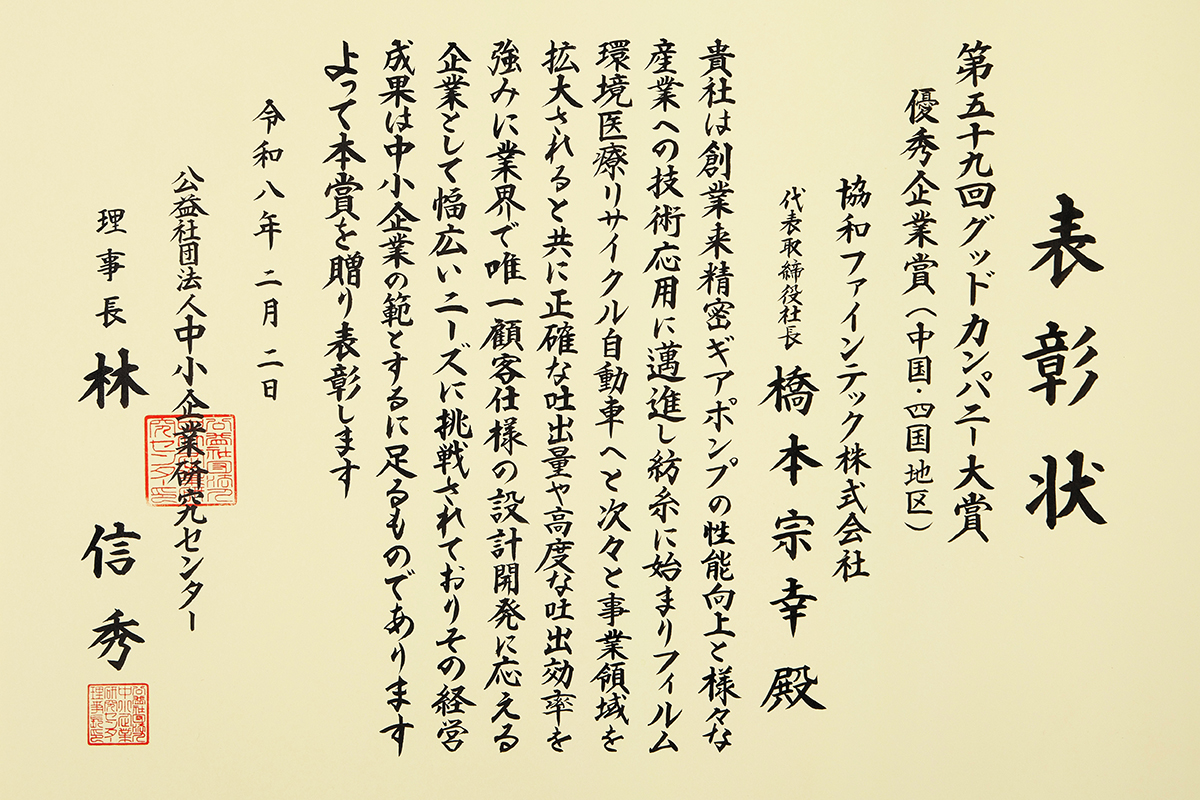 表彰状
第五十九回グッドカンパニー大賞
優秀企業賞(中国・四国地区)
協和ファインテック株式会社
代表取締役社長 橋本宗幸殿
貴社は創業来精密ギアポンプの性能向上と様々な
産業への技術応用に邁進し紡糸に始まりフィルム
環境医療リサイクル自動車へと次々と事業領域を
拡大されると共に正確な吐出量や高度な吐出効率を
強みに業界で唯一顧客仕様の設計開発に応える
企業として幅広いニーズに挑戦されておりその経営
成果は中小企業の範とするに足るものであります
よって本賞を贈り表彰します
令和八年二月二日
公益社団法人中小企業研究センター
理事長 林信秀